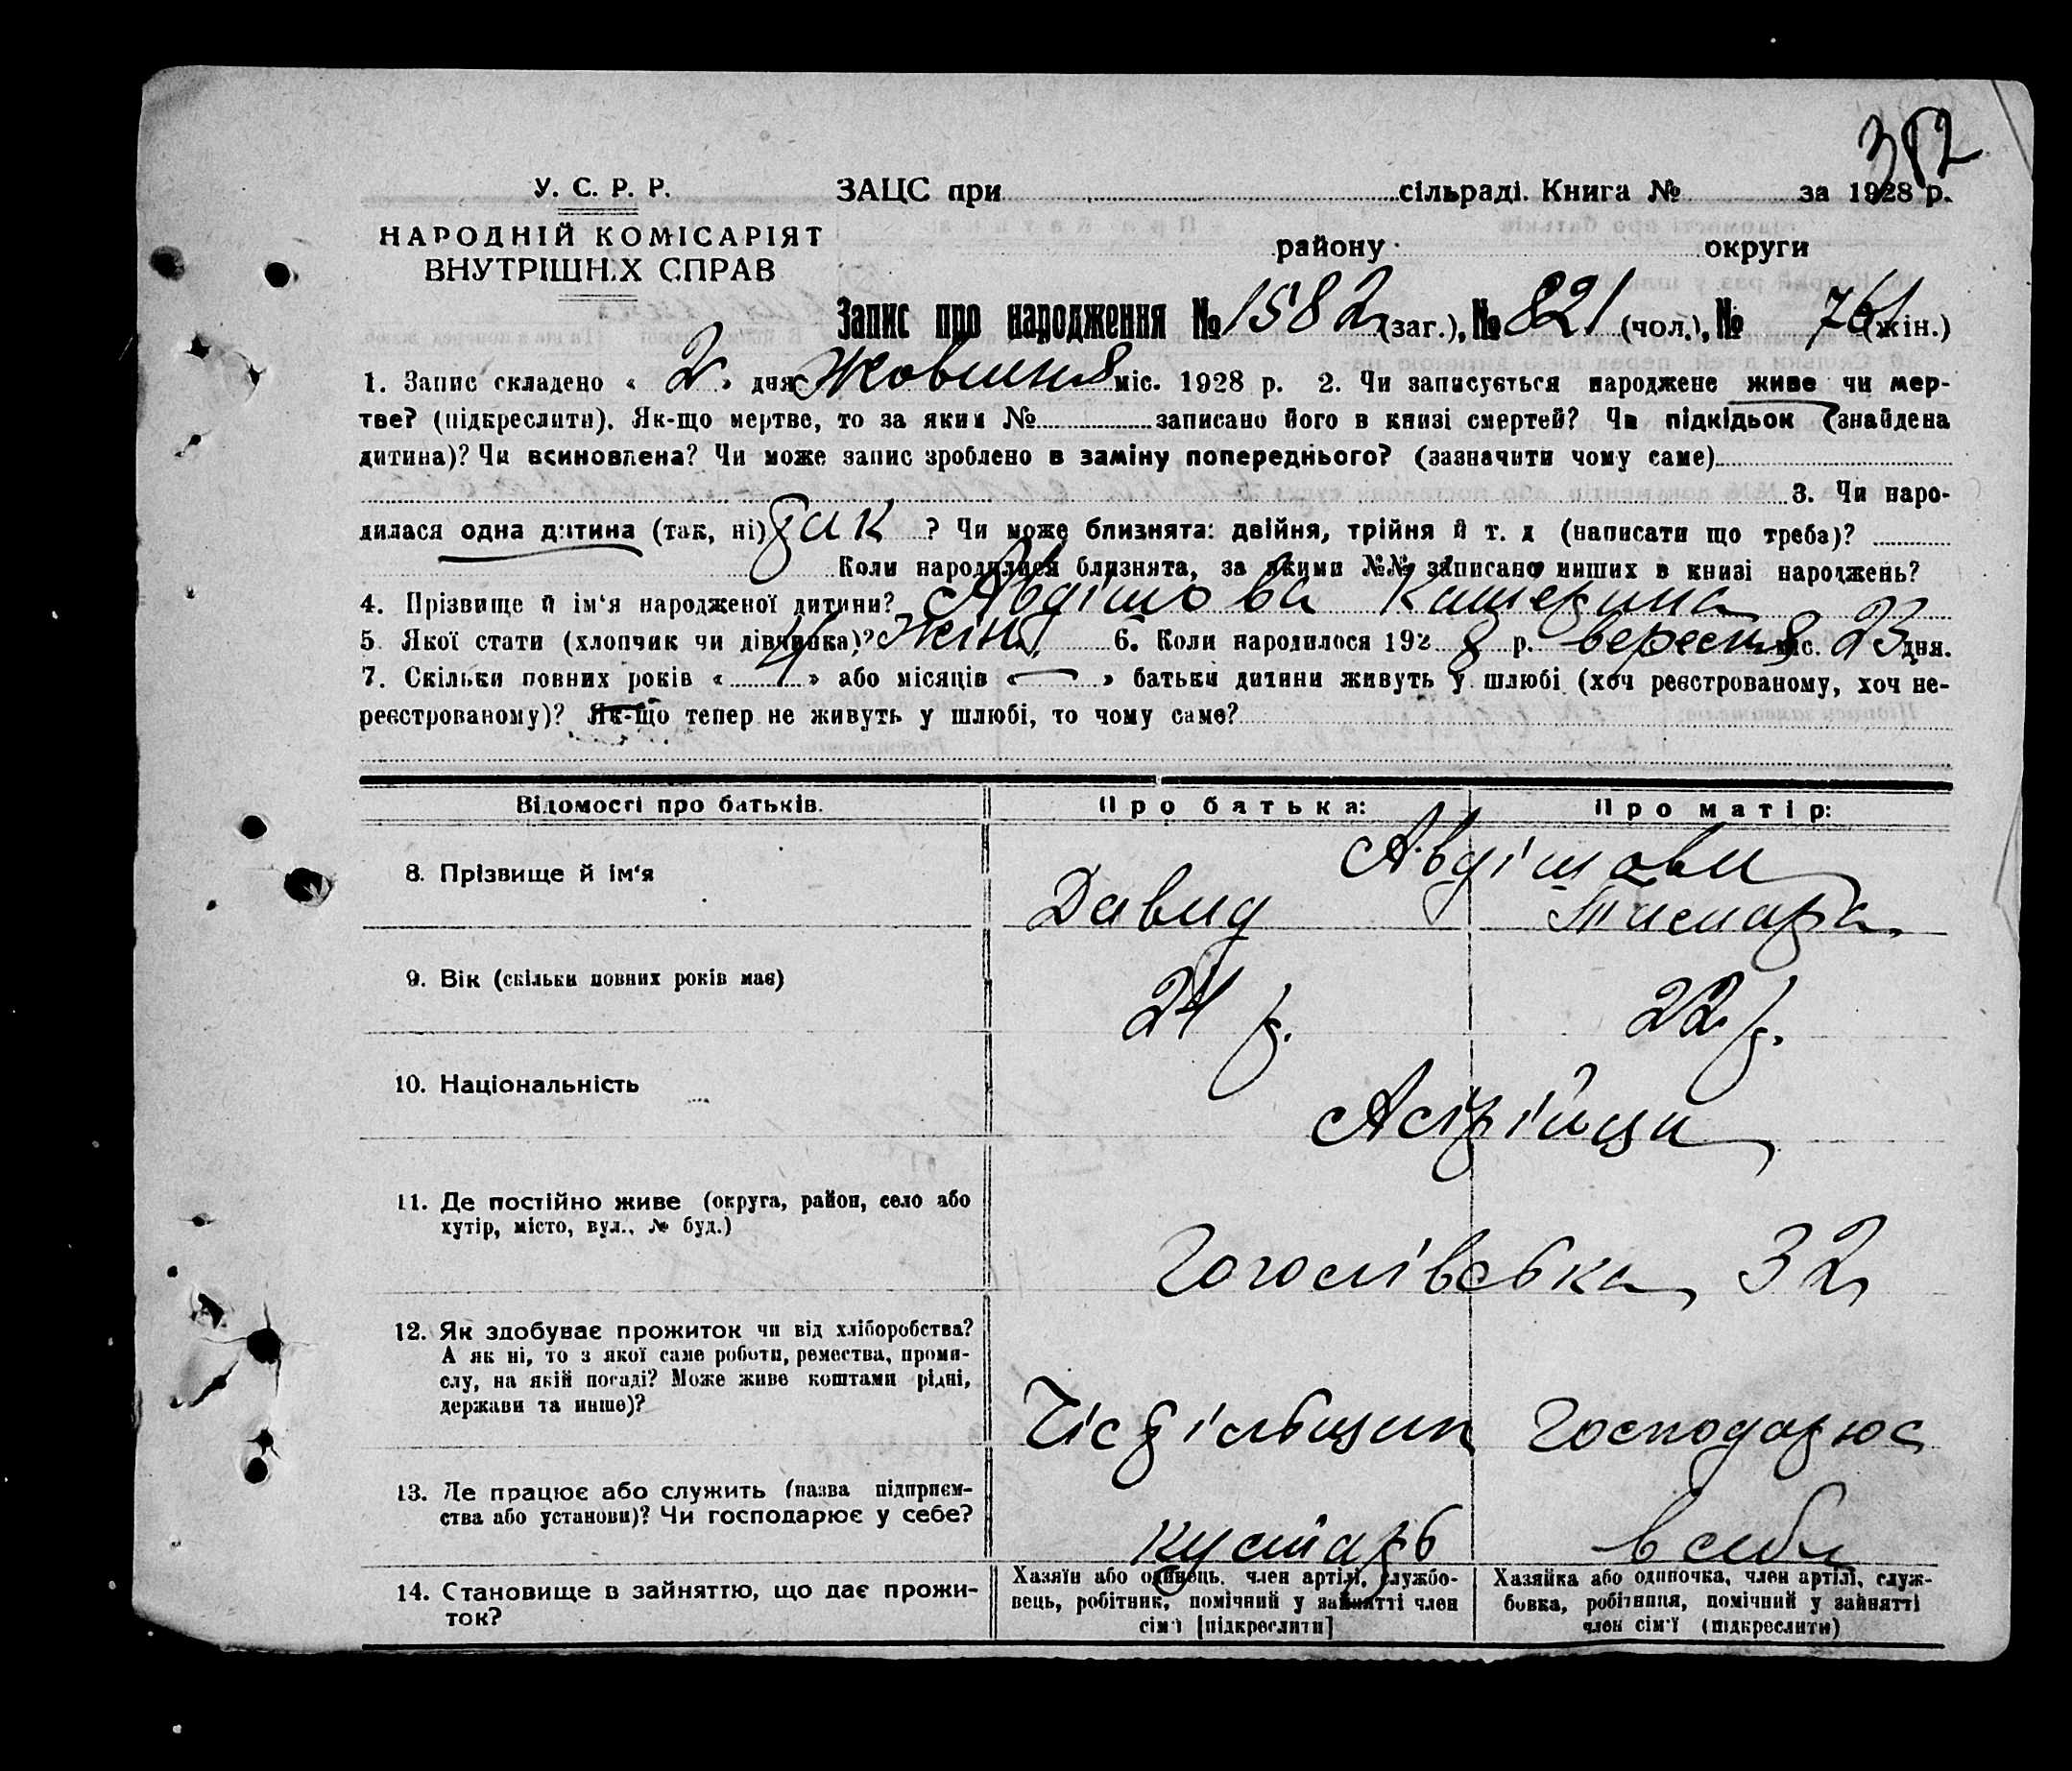 382
У. С. Р. Р.
НАРОДНІЙ КОМІСАРІЯТ
ВНУТРІШНІХ СПРАВ
ЗАЦС при сільраді. Книга № за 1928 р.
району округи
Запис про народження № 1582 (заг.), № 821 (чол.), № 761 (жін.)
1. Запис складено « 2 » дня Жовтня міс. 1928 р. 2. Чи записується народжене живе чи мер-
тве? (підкреслити). Як-що мертве, то за яким № записано його в книзі смертей? Чи підкідьок (знайдена
дитина)? Чи всиновлена? Чи може запис зроблено в заміну попереднього? (зазначити чому саме)
3. Чи наро-
дилася одна дитина (так, ні) так ? Чи може близнята: двійня, трійня й т. д (написати що треба)?
Коли народилися близнята, за якими №№ записано инших в книзі народжень?
4. Прізвище й ім‘я народженої дитини? Авдішова Катерина
5. Якої стати (хлопчик чи дівчинка)? Жін. 6. Коли народилося 1928 р. вересня міс. 23 дня.
7. Скільки повних років « 4 » або місяців « — » батьки дитини живуть у шлюбі (хоч реєстрованому, хоч не-
реєстрованому)? Як-що тепер не живуть у шлюбі, то чому саме?
Відомості про батьків. Про батька: Про матір:
Авдішови
8. Прізвище й ім‘я Давид Тамара
9. Вік (скільки повних років має) 24 р. 22 р.
10. Національність Асірійци
11. Де постійно живе (округа, район, село або
хутір, місто, вул., № буд.)
Гоголівська 32
12. Як здобуває прожиток чи від хліборобства?
А як ні, то з якої саме роботи, ремества, проми-
слу, на якій посаді? Може живе коштами рідні,
держави та инше)?
Чістільщик Господарює
13. Де працює або служить (назва підприєм-
ства або установи)? Чи господарює у себе?
кустарь в себе
14. Становище в зайняттю, що дає прожи-
ток?
Хазяїн або одинець, член артілі, службо-
вець, робітник, помічний у зайнятті член
сім‘ї [підкреслити]
Хазяйка або одиночка, член артілі, служ-
бовка, робітниця, помічний у зайнятті
член сім‘ї (підкреслити)